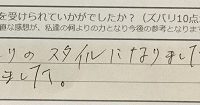 を受けられていかがでしたか?(ズバリ10点
直な感想が、私達の何よりの力となり今後の参考となります
りの スタイルになりました
ました。